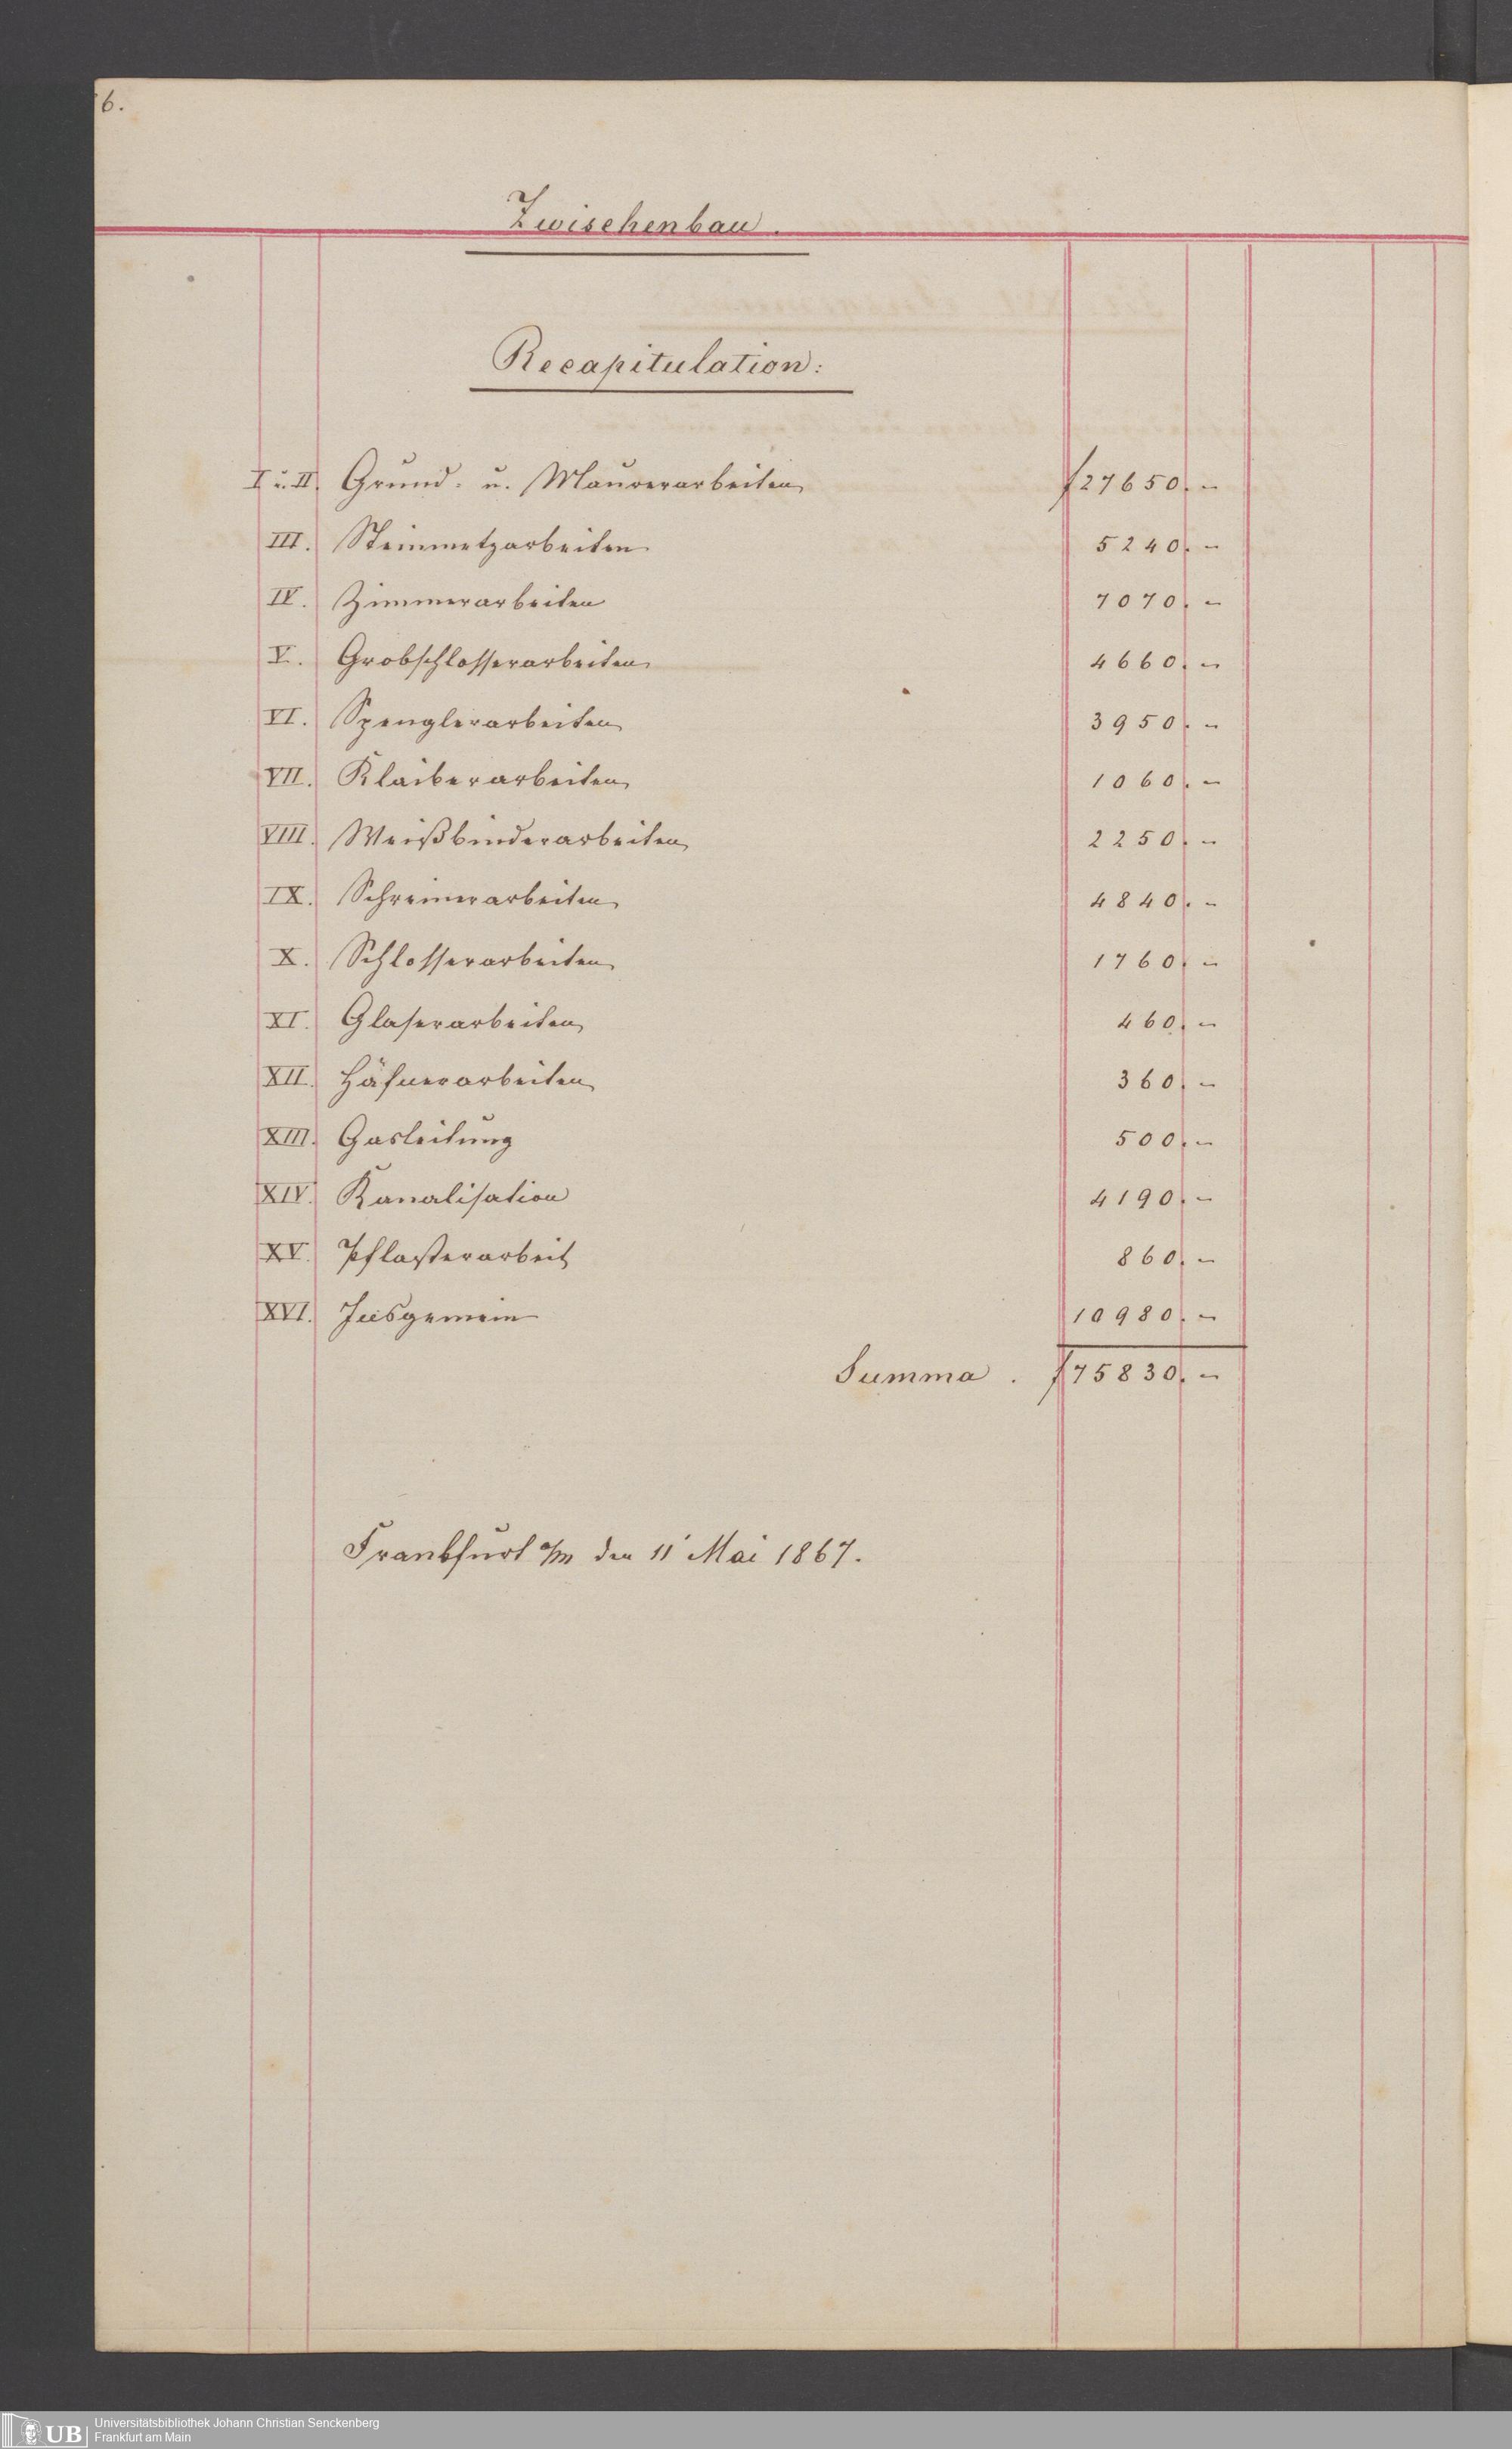 6.
Zwischenbau.
Recapitulation:
I u. II. Grund- u. Maurerarbeiten f 27650. –
III. Steinmetzarbeiten 5240. –
IV. Zimmerarbeiten 7070. –
V. Grobschlosserarbeiten 4660. –
VI. Spenglerarbeiten 3950. –
VII. Klaiberarbeiten 1060. –
VIII. Weißbinderarbeiten 2250. –
IX. Schreinerarbeiten 4840. –
X. Schlosserarbeiten 1760. –
XI. Glaserarbeiten 460. –
XII. Häfnerarbeiten 360. –
XIII. Gasleitung 500. –
XIV. Kanalisation 4190. –
XV. Pflasterarbeit 860. –
XVI. Insgemein 10980. –
Summa . f 75830. –
Frankfurt a/m den 11 Mai 1867.
UB
Universitätsbibliothek Johann Christian Senckenberg
Frankfurt am Main